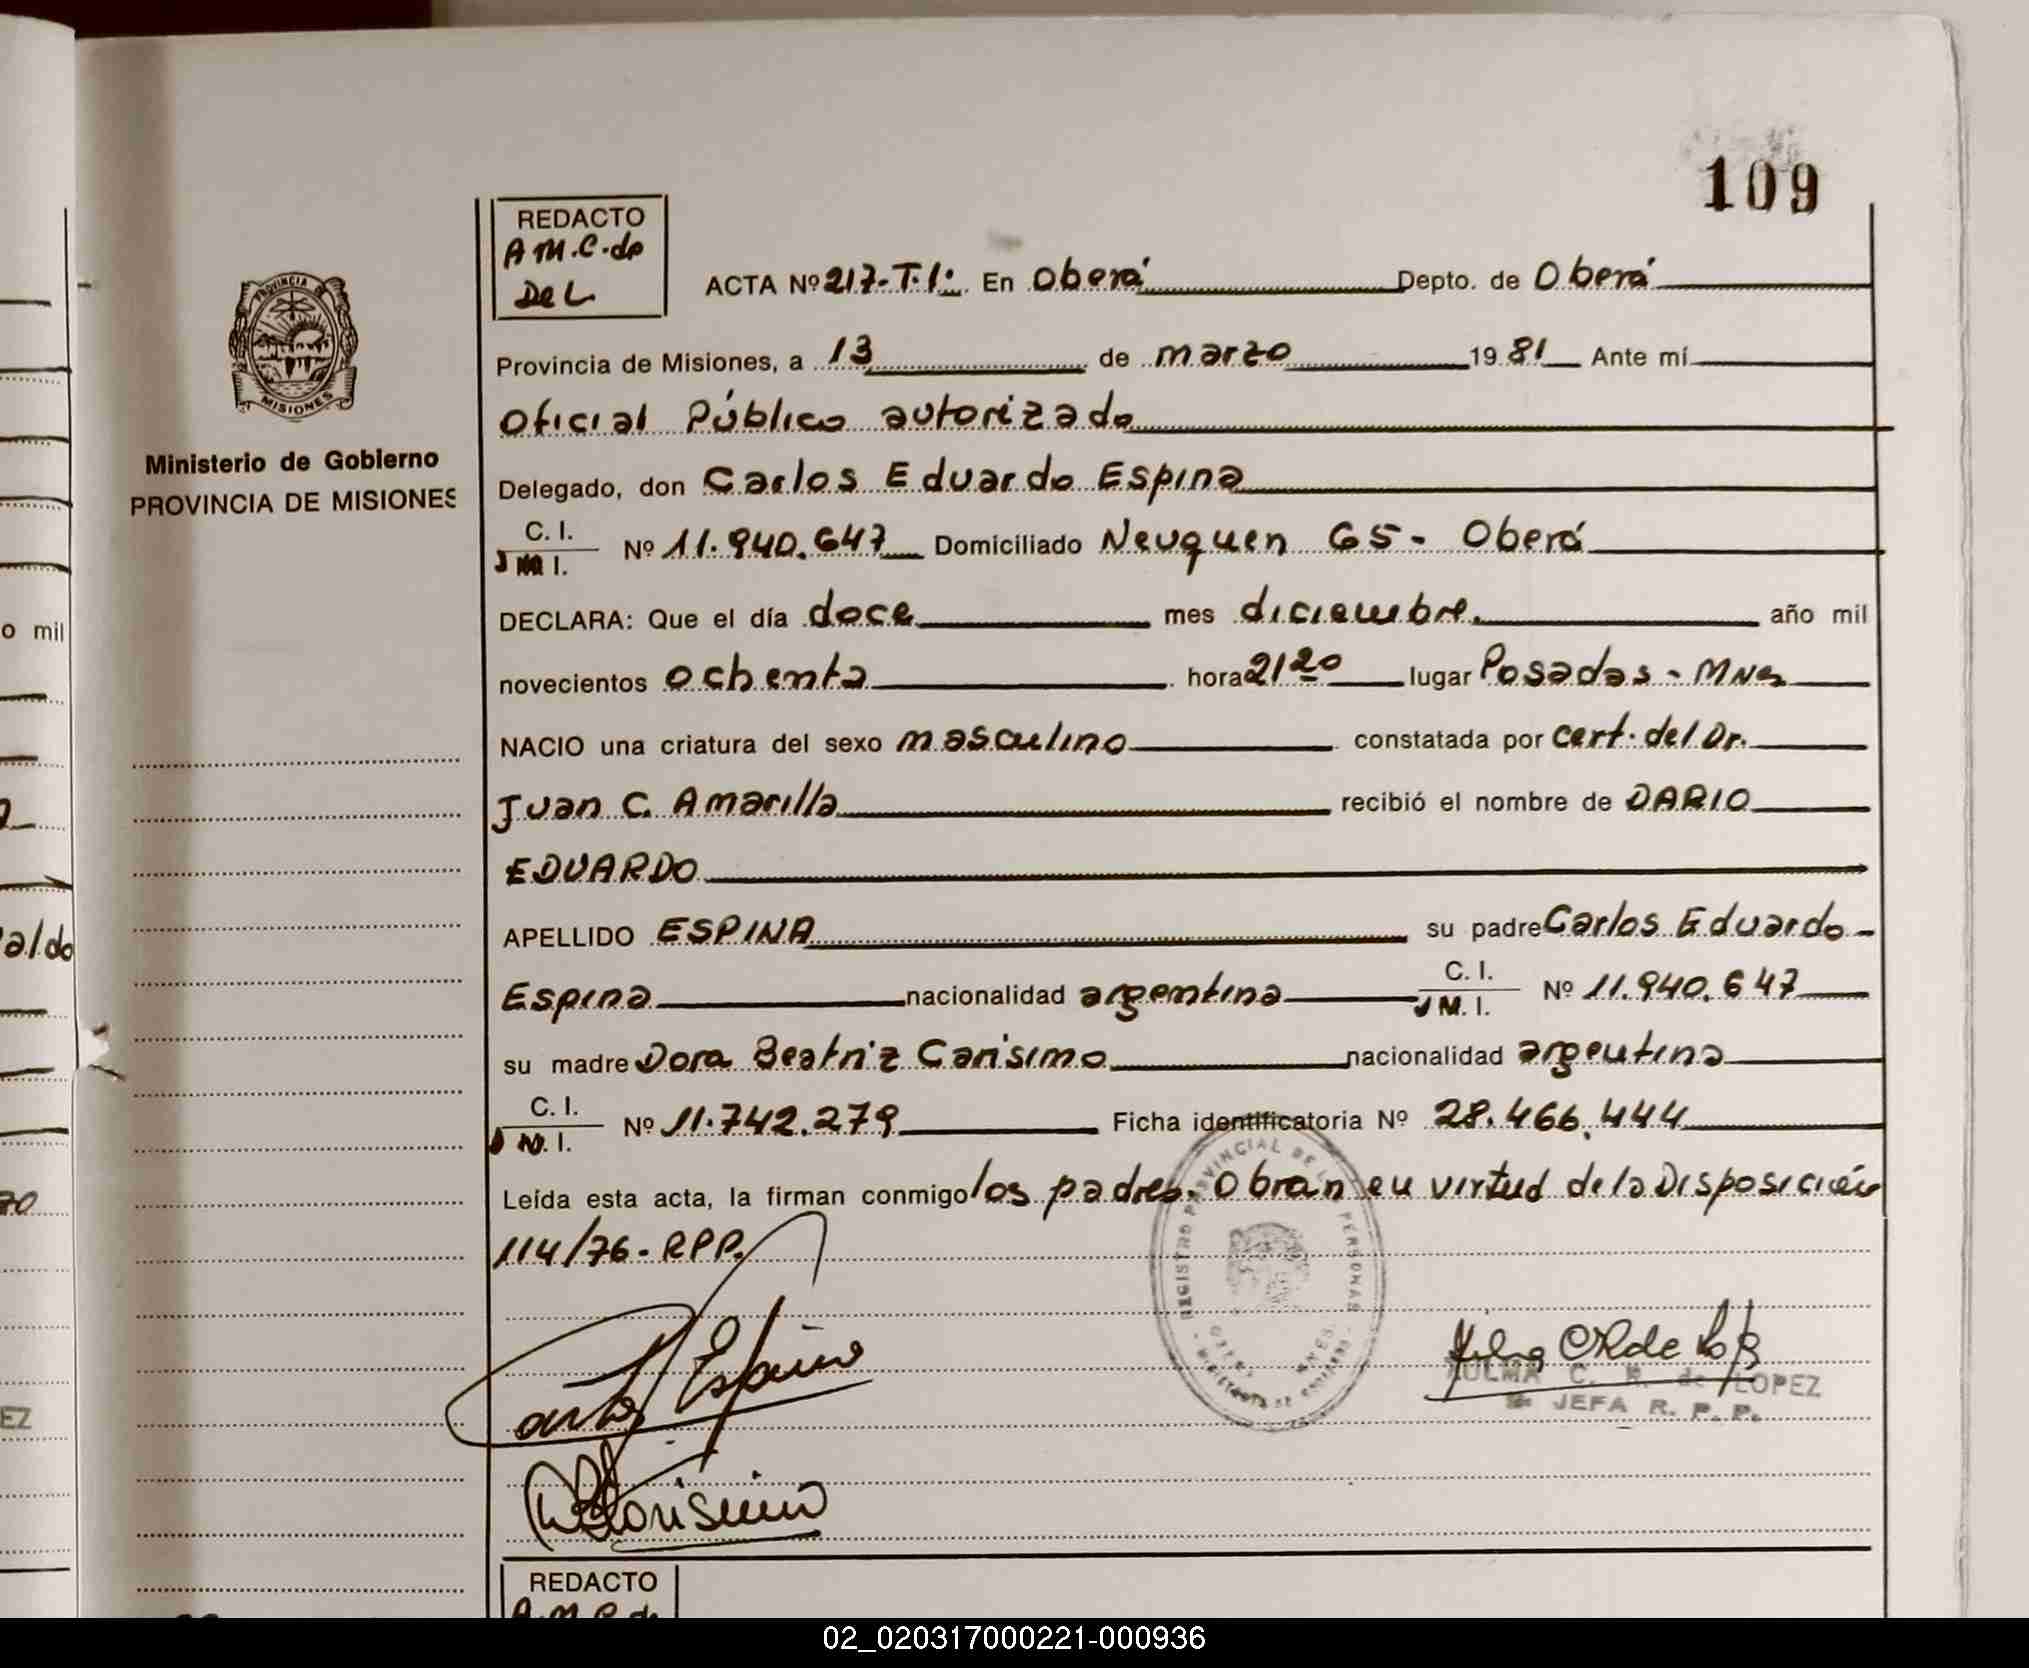 109
REDACTO
A M.C. de
De L
ACTA Nº 217-T.1º. En Oberá Depto. de Oberá
PROVINCIA DE
MISIONES
Ministerio de Gobierno
PROVINCIA DE MISIONES
Provincia de Misiones, a 13 de marzo 1981 Ante mí
Oficial Público autorizado
Delegado, don Carlos Eduardo Espina
C. I.
Nº 11.940.647 Domiciliado Neuquen 65- Oberá
M I.
DECLARA: Que el día doce mes diciembre, año mil
novecientos ochenta hora 21 20 lugar Posadas - Mnes
NACIO una criatura del sexo masculino constatada por cert. del Dr.
Juan C. Amarilla recibió el nombre de DARIO
EDUARDO
APELLIDO ESPINA su padre Carlos Eduardo -
C. I.
Espina nacionalidad argentina Nº 11.940.647
M. I.
su madre Dora Beatriz Carísimo nacionalidad argentina
C. I.
Nº 11.742.279 Ficha identificatoria Nº 28.466.444
M. I.
Leída esta acta, la firman conmigo los padres. Obran en virtud de la Disposición
114/76 - RPP.
REGISTRO PROVINCIAL DE LAS PERSONAS
Carlos Espina
Carisimo
ZULMA C. R. de LOPEZ
JEFA R. P. P.
REDACTO
A.M.C. de
o mil
aldo
EZ
02_020317000221-000936